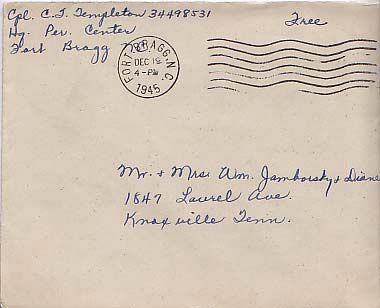 Cpl. C.T. Templeton 34498531
Hq. Per. Center
Fort Bragg
Free
FORT BRAGG. N.C.
DEC 19
4-PM
1945
Mr. + Mrs. Wm. Jamborsky + Diane
1847 Laurel Ave.
Knoxville Tenn.